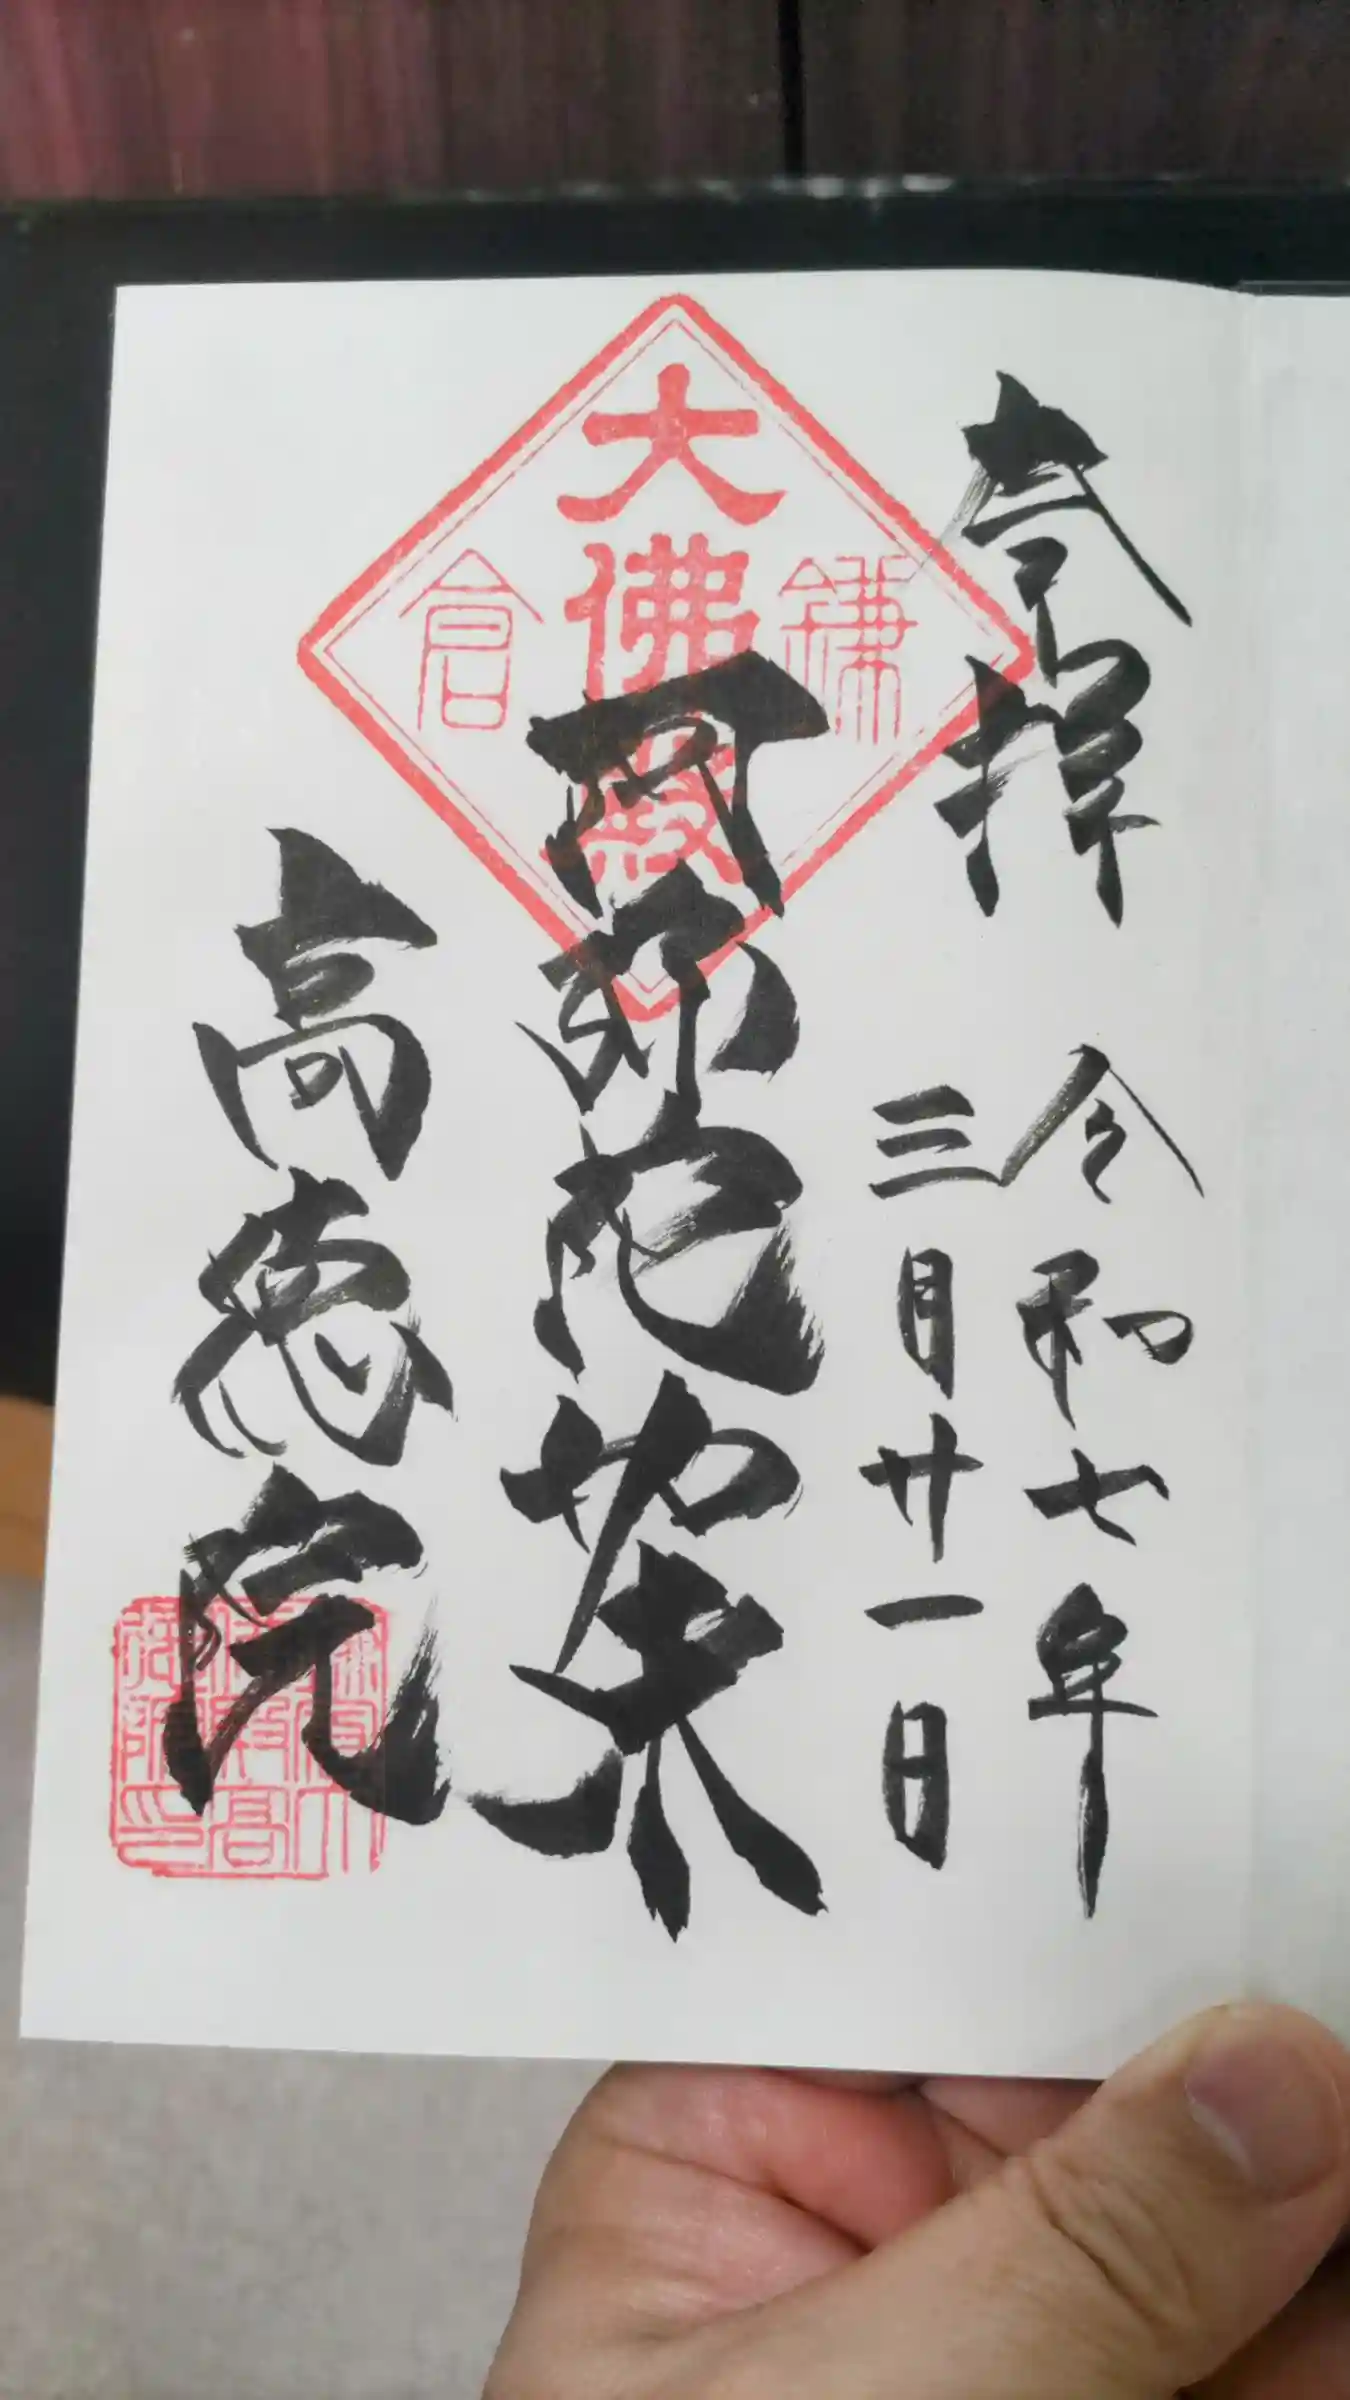 奉拝
令和七年
三月廿一日
鎌倉
大佛殿
阿弥陀如来
高徳院